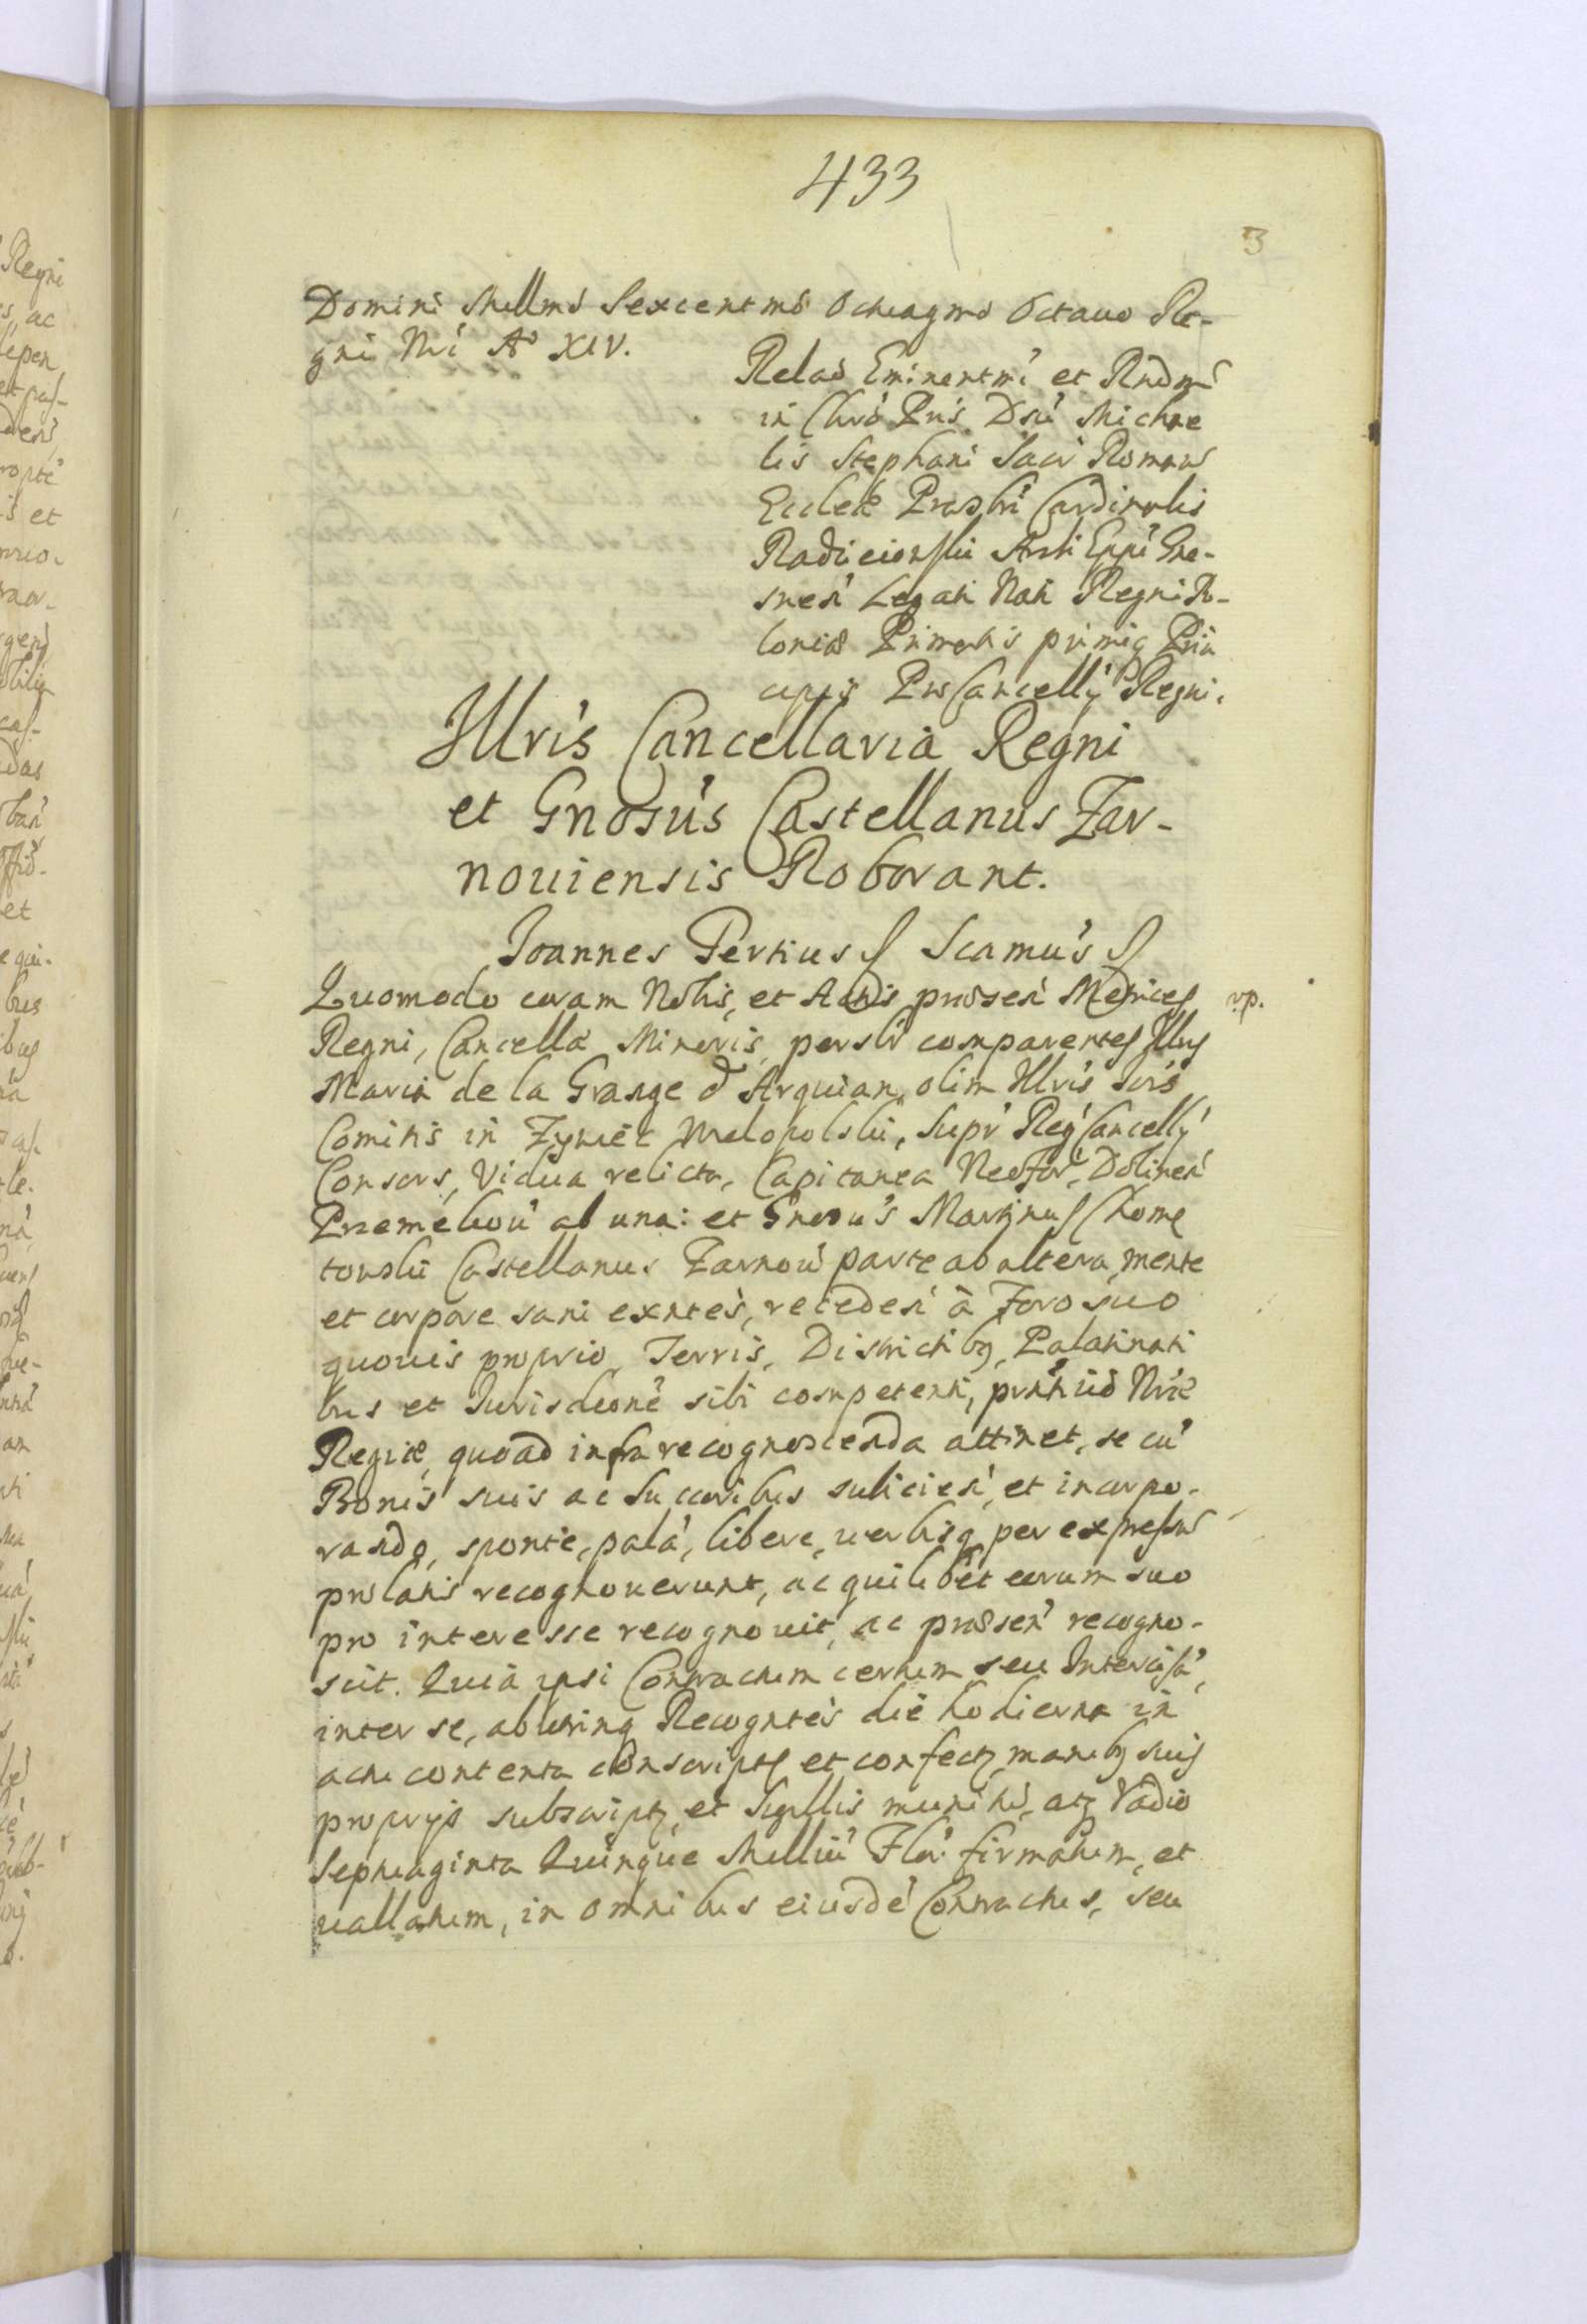 433
3
Domini Millmo Sexcentmo Octuagmo Octauo Re-
gni Nri Ao XIV.
Relao Eminentmi et Rndmi
in Chro Pris Dni Michae
lis Stephani Sacr Romanæ
Eccleæ Præsbri Cardinalis
Radzieiowski Archi Eppi Gne-
snen Legati Nati Regni Po-
loniæ Primatis primiq Prin
cipis ProCancellÿ Regni.
Illris Cancellaria Regni
et Gnosus Castellanus Żar-
nouiensis Roborant.
Joannes Tertius Scamus
Quomodo coram Nobis, et Actis præsen Metrices
vp.
Regni, Cancellæ Minoris, persolr comparentes Illus
Maria de la Grange d Arquian, olim Illris Joris
Comitis in Zywiec Wielopolski, Supr Reg Cancellÿ
Consors, Vidua relicta, Capitanea Neofor, Dolinen
ab una: et Gnosus Martinus Chome
towski Castellanus Żarnou parte ab altera, mente
et corpore sani exntes, receden à Foro suo
quouis proprio, Terris, Districtibq, Palatinati
bus et Jurisdconē sibi competenti, Nræ
Regiæ, quoad infra recognoscenda attinet, se cu
Bonis suis ac Succoribus subiicien, et incorpo-
rando, sponte, pala, libere, uerbisq per expressu
prolatis recognouerunt, ac quilibet eorum suo
pro interesse recognouit, ac præsen recogno-
scit. Quia ipsi Contractum certum seu Intercisa,
inter se, ab utrinq Recogntes die hodierna in
actu contenta conscript et confect manibq suis
proprÿs subscript, et Sigillis munitu, atq Vadio
Septuaginta Quinque Milliu Flor firmatum, et
uallatum, in omnibus eiusde Contractus, seu